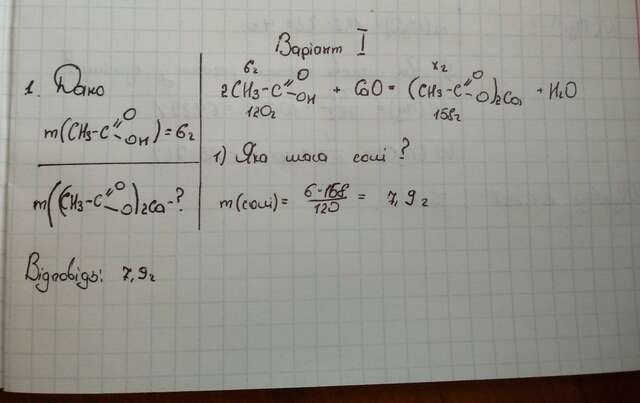 Варіант I
1. Дано
m(CH3-C=O-OH)=6г
m((CH3-C=O-O)2Ca-?
6г хг
2CH3-C=O-OH + CaO = (CH3-C=O-O)2Ca + H2O
120г 158г
1) Яка маса солі?
m(солі) = 6·158/120 = 7,9г
Відповідь: 7,9г